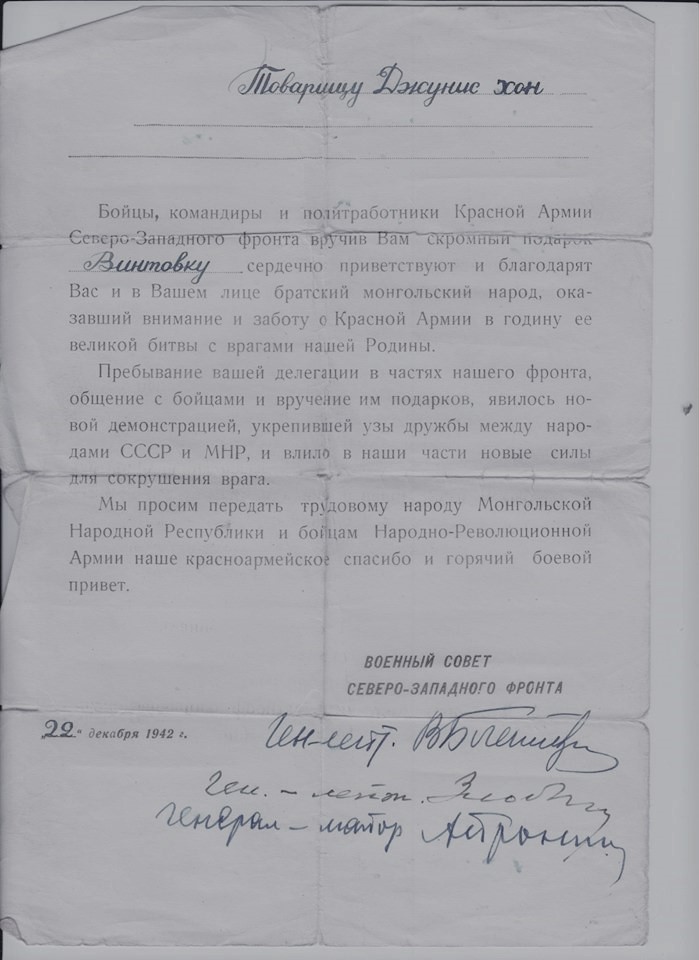 Товарищу Джунис хон
Бойцы, командиры и политработники Красной Армии
Северо-Западного фронта вручив Вам скромный подарок
Винтовку сердечно приветствуют и благодарят
Вас и в Вашем лице братский монгольский народ, ока-
завший внимание и заботу о Красной Армии в годину ее
великой битвы с врагами нашей Родины.
Пребывание вашей делегации в частях нашего фронта,
общение с бойцами и вручение им подарков, явилось но-
вой демонстрацией, укрепившей узы дружбы между наро-
дами СССР и МНР, и влило в наши части новые силы
для сокрушения врага.
Мы просим передать трудовому народу Монгольской
Народной Республики и бойцам Народно-Революционной
Армии наше красноармейское спасибо и горячий боевой
привет.
ВОЕННЫЙ СОВЕТ
СЕВЕРО-ЗАПАДНОГО ФРОНТА
„22“ декабря 1942 г.
Ген.-лейт.
Ген. - лейт.
Генерал - майор